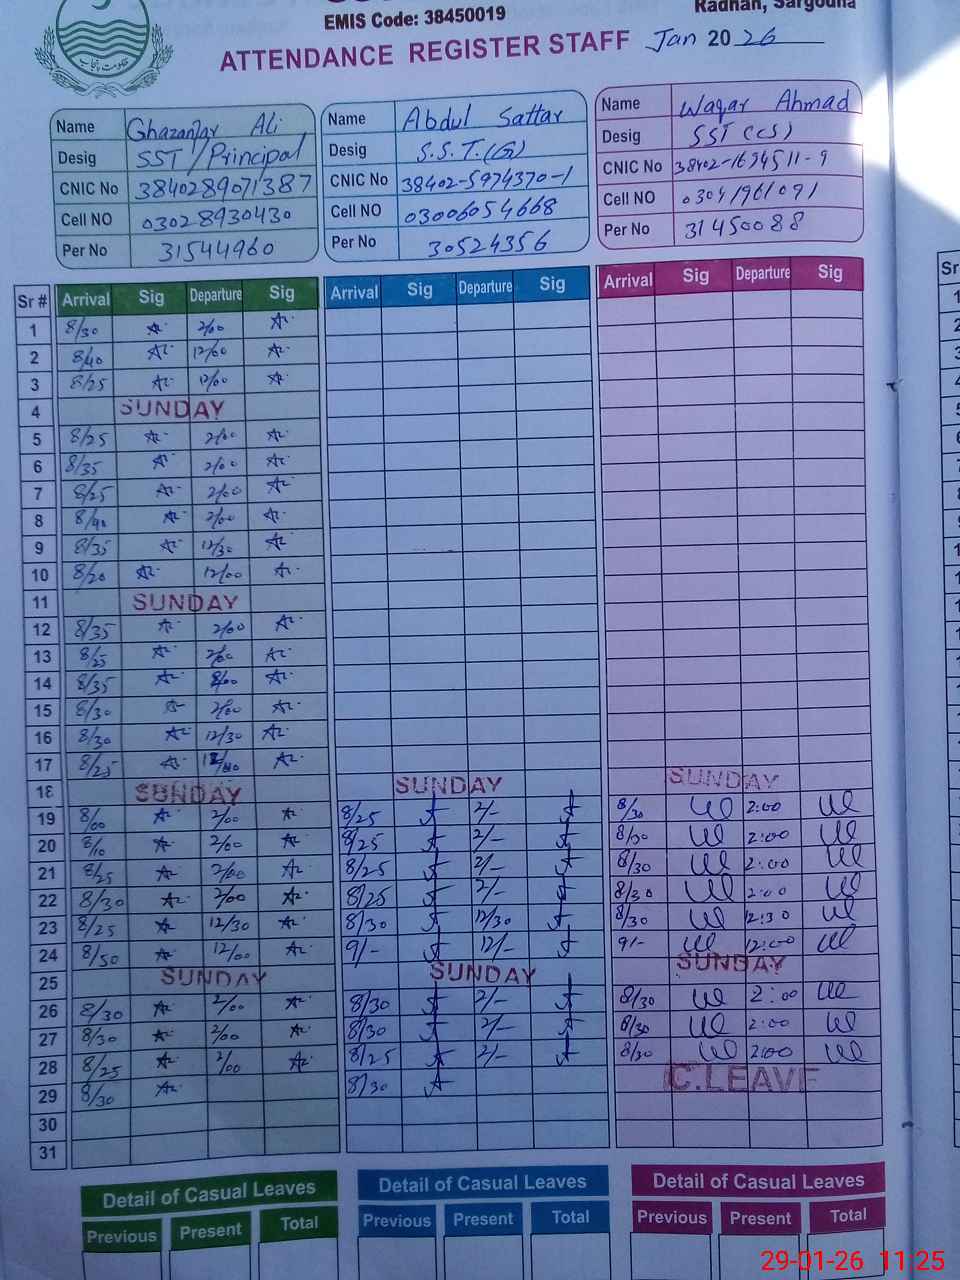 EMIS Code: 38450019
Radhan, Sargodha
ATTENDANCE REGISTER STAFF Jan 2026
حکومت پنجاب
Name Ghazanfar Ali
Desig SST/Principal
CNIC No 3840289071387
Cell NO 03028930430
Per No 31544960
Name Abdul Sattar
Desig S.S.T.(G)
CNIC No 38402-5974370-1
Cell NO 03006054668
Per No 30524356
Name Waqar Ahmad
Desig SST (CS)
CNIC No 38402-1694511-9
Cell NO 03041961091
Per No 31450088
Sr # Arrival Sig Departure Sig Arrival Sig Departure Sig Arrival Sig Departure Sig
1 8/30 2/00
2 8/40 12/00
3 8/25 12/00
4 SUNDAY
5 8/25 2/00
6 8/35 2/00
7 8/25 2/00
8 8/40 2/00
9 8/35 12/30
10 8/20 12/00
11 SUNDAY
12 8/35 2/00
13 8/25 2/00
14 8/35
15 8/30 2/00
16 8/30 12/30
17 8/25 12/00
18 SUNDAY SUNDAY SUNDAY
19 8/00 2/00 8/25 2/- 8/30 2:00
20 8/10 2/00 8/25 2/- 8/30 2:00
21 8/25 2/00 8/25 2/- 8/30 2:00
22 8/30 2/00 8/25 2/- 8/30 2:00
23 8/25 12/30 8/30 12/30 8/30 12:30
24 8/50 12/00 9/- 12/- 9/- 12:00
25 SUNDAY SUNDAY SUNDAY
26 8/30 2/00 8/30 2/- 8/30 2:00
27 8/30 2/00 8/30 2/- 8/30 2:00
28 8/25 2/00 8/25 2/- 8/30 2:00
29 8/30 8/30 C.LEAVE
30
31
Detail of Casual Leaves Detail of Casual Leaves Detail of Casual Leaves
Previous Present Total Previous Present Total Previous Present Total
29-01-26 11:25